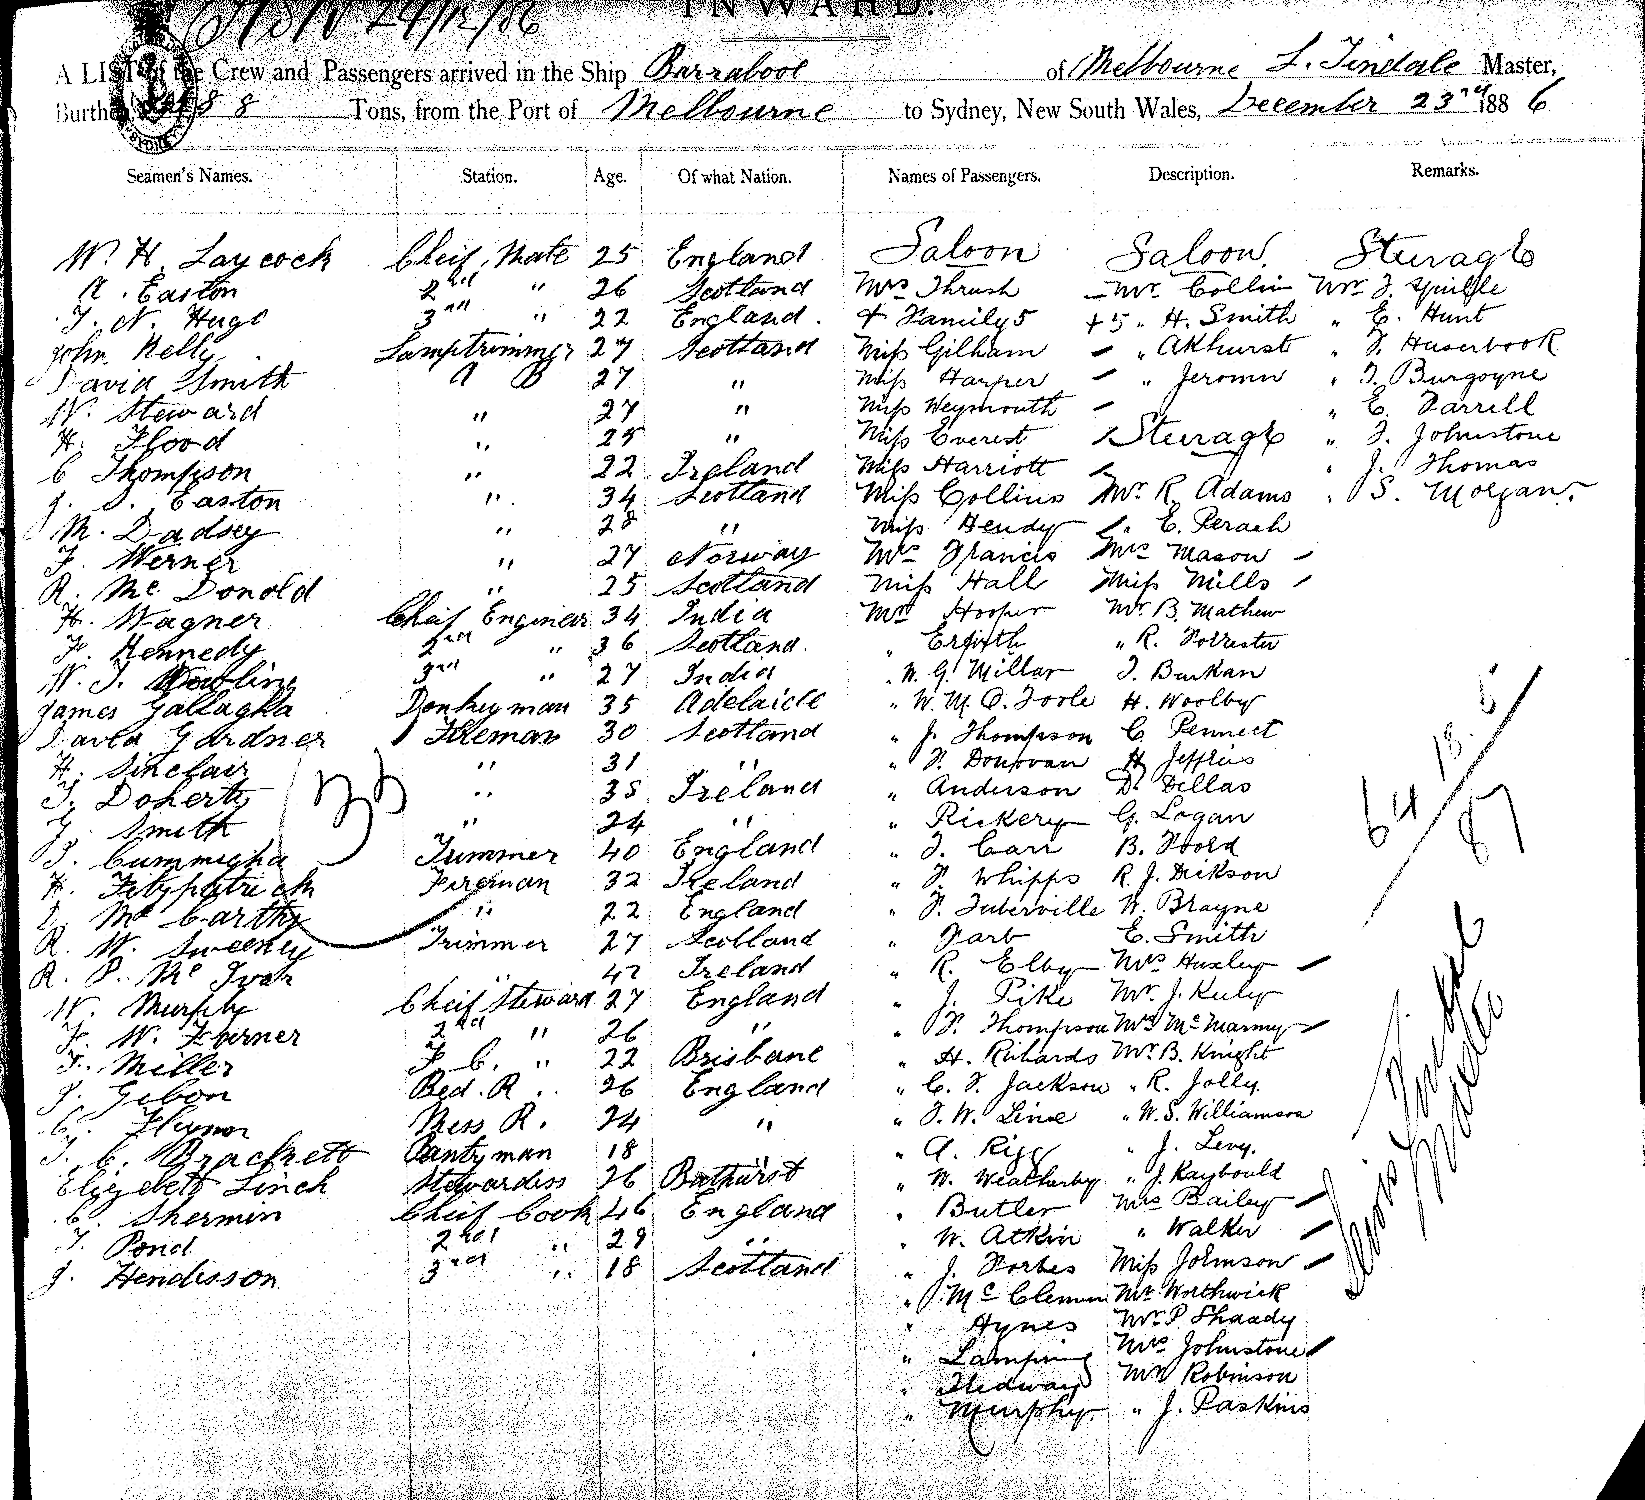 INWARD.
24/12/86
A LIST of the Crew and Passengers arrived in the Ship Barrabool of Melbourne L. Tindale Master,
Burthen 88 Tons, from the Port of Melbourne to Sydney, New South Wales, December 23rd 1886
Seamen's Names. Station. Age. Of what Nation. Names of Passengers. Description. Remarks.
W. H. Laycock Cheif Mate 25 England Saloon Saloon Sturage
A. Easton 2nd " 26 Scotland Mrs Thrush - Mr Collin Mr J. Spindle
T. N. Hugo 3rd " 22 England. + Family 5 +5 " H. Smith " E. Hunt
John Kelly Lamptrimmer 27 Scotland Miss Gilham - " Akhurst " F. Huserbook
David Smith A B 27 " Miss Harper - " Jeromn " T. Burgoyne
W. Steward " 27 " Miss Weymouth - " E. Farrell
H. Flood " 25 " Miss Everest / Sturage " J. Johnstone
C Thompson " 22 Ireland Miss Harriott - " J. Thomas
J. S. Easton " 34 Scotland Miss Collins Mr R. Adams " S. Morgan.
M. Dadsey " 28 " Miss Hendy / " E. Perach
F. Werner " 27 Norway Mrs Francis Mrs Mason -
R. Mc Donold " 25 Scotland Miss Hall Miss Mills -
H. Wagner Cheif Enginear 34 India Mr Hooper Mr B. Mathew
F. Kennedy 2nd " 36 Scotland. " " R. Forrester
W. J. Dowling 3rd " 27 India " W. G. Millar J. Burkan
James Gallagha Donkeyman 35 Adelaide " W. M. O. Toole H. Woolby
David Gardner Fireman 30 Scotland " J. Thompson C. Pennect
H. Sinclair " 31 " " F. Donovan H Jeffris
J. Doherty " 35 Ireland " Anderson D. Dillas
J. Smith " 24 " " Rickery G. Logan
J. Cummigha Trimmer 40 England " J. Carr B. Foord
H. Fitzpatrick Fireman 32 Ireland " F. Whipps R. J. Dikson
Mc Carthy " 22 England " F. Tuberville W. Brayne
R. W. Sweeney Trimmer 27 Scotland " Farb E. Smith
R. P. Mc Ivah " 42 Ireland " R. Elby Mrs Huxley -
W. Murphy Cheif Steward 27 England " J. Pike Mr. J. Kuly
F. W. 2nd " 26 " " F. Thompson Mrs Mc Marmy -
F. Miller F. C. " 22 Brisbane " H. Richards Mr B. Knight
J. Gibon Bed. R .. 26 England " C. F. Jackson " R. Jolly.
C. Flynor Mess R. 24 " " J. W. Line " W. S. Williamson
J. C. Brackett Pantryman 18 " " A. Rigg " J. Levy.
Elizebeth Linch Stewardiss 26 Bathurst " W. Weatherby " J. Raybould
C. Shermin Cheif Cook 46 England " Butler Mrs Bailey -
J. Pond 2nd " 29 " " W. Atkin " Walker -
J. Hendisson 3rd " 18 Scotland " J. Forbes Miss Johnson -
" J. Mc Clemen Mr Worthwick
" Hynes Mr P. Shaady
" Lamping Mrs Johnstone -
" Medway Mr Robinson
" Murphy. " J. Paskins
64
87
Master